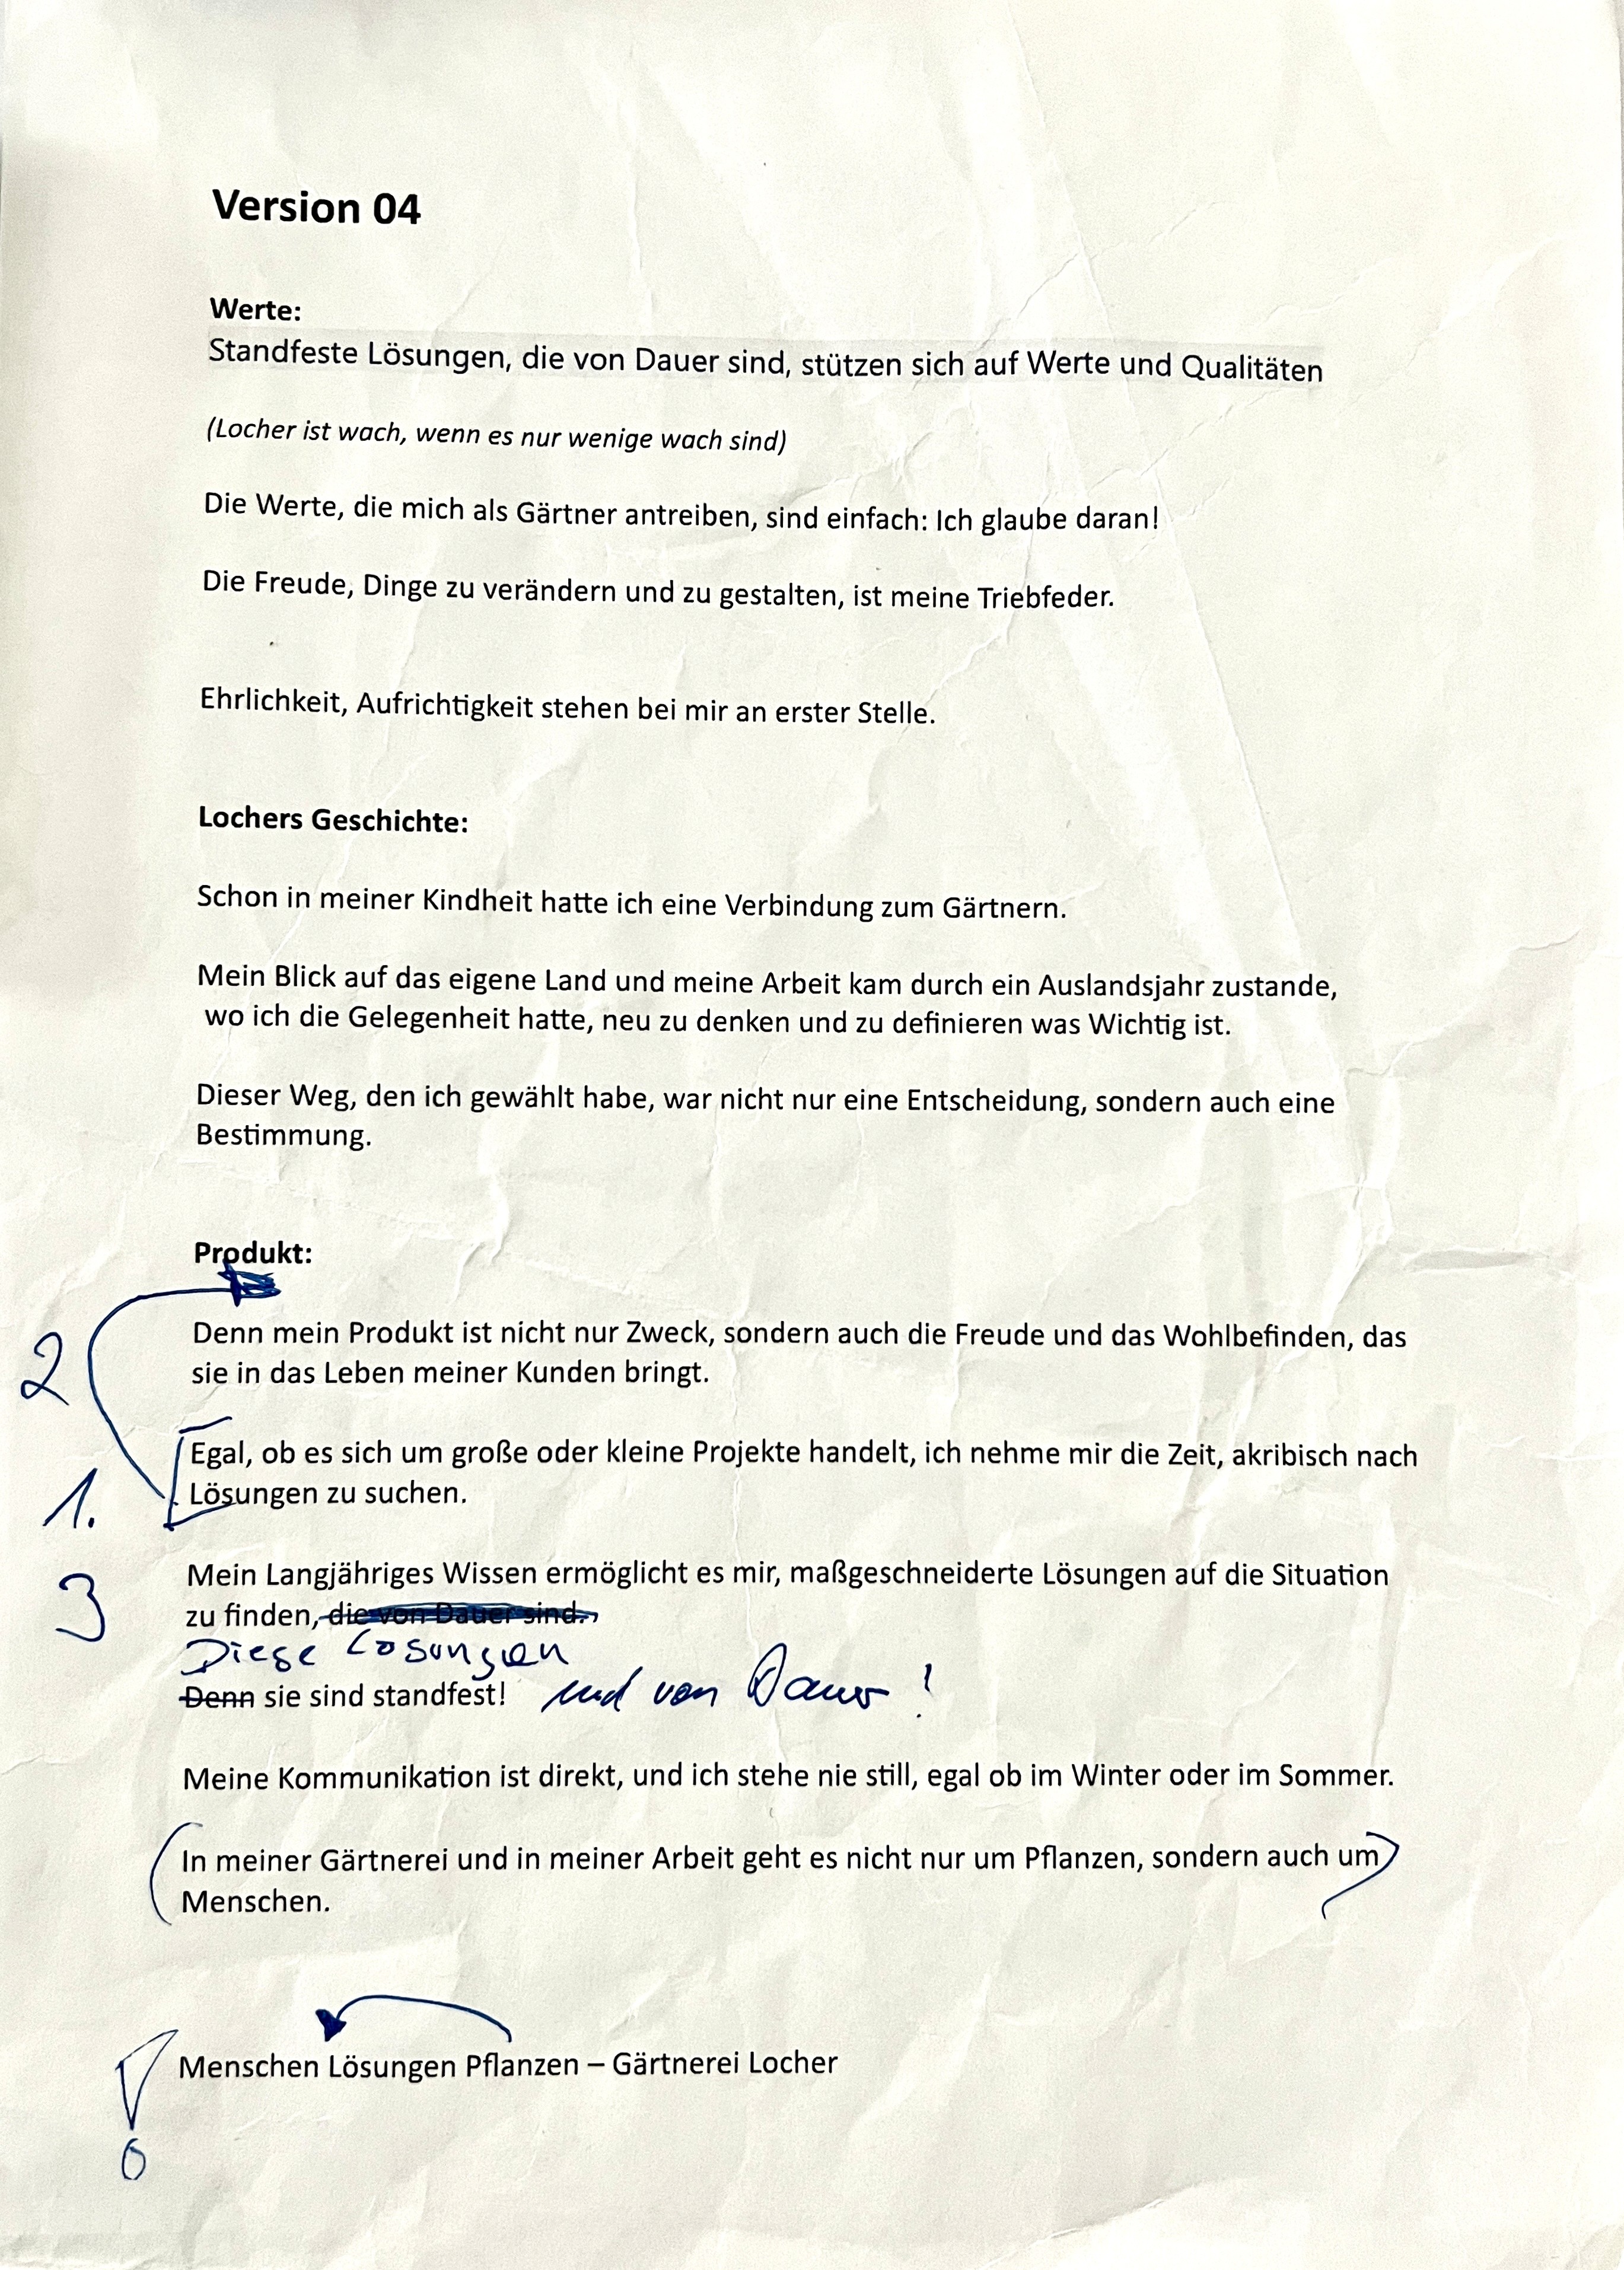 Version 04
Werte:
Standfeste Lösungen, die von Dauer sind, stützen sich auf Werte und Qualitäten
(Locher ist wach, wenn es nur wenige wach sind)
Die Werte, die mich als Gärtner antreiben, sind einfach: Ich glaube daran!
Die Freude, Dinge zu verändern und zu gestalten, ist meine Triebfeder.
Ehrlichkeit, Aufrichtigkeit stehen bei mir an erster Stelle.
Lochers Geschichte:
Schon in meiner Kindheit hatte ich eine Verbindung zum Gärtnern.
Mein Blick auf das eigene Land und meine Arbeit kam durch ein Auslandsjahr zustande,
wo ich die Gelegenheit hatte, neu zu denken und zu definieren was Wichtig ist.
Dieser Weg, den ich gewählt habe, war nicht nur eine Entscheidung, sondern auch eine
Bestimmung.
Produkt:
2
Denn mein Produkt ist nicht nur Zweck, sondern auch die Freude und das Wohlbefinden, das
sie in das Leben meiner Kunden bringt.
1.
Egal, ob es sich um große oder kleine Projekte handelt, ich nehme mir die Zeit, akribisch nach
Lösungen zu suchen.
3
Mein Langjähriges Wissen ermöglicht es mir, maßgeschneiderte Lösungen auf die Situation
zu finden, die von Dauer sind.
Diese Lösungen
Denn sie sind standfest! und von Dauer!
Meine Kommunikation ist direkt, und ich stehe nie still, egal ob im Winter oder im Sommer.
(In meiner Gärtnerei und in meiner Arbeit geht es nicht nur um Pflanzen, sondern auch um
Menschen.)
Menschen Lösungen Pflanzen – Gärtnerei Locher
!